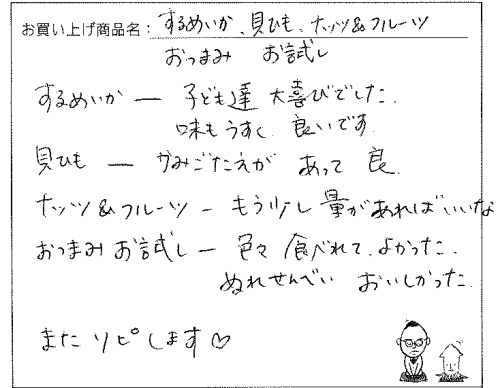 お買い上げ商品名：するめいか、貝ひも、ナッツ&フルーツ
おつまみ お試し
するめいか ー 子ども達 大喜びでした.
味もうすく 良いです
貝ひも ー かみごたえが あって 良.
ナッツ&フルーツ ー もう少し量があればいいな
おつまみお試し ー 色々 食べれて、よかった.
ぬれせんべい おいしかった.
また リピします♡